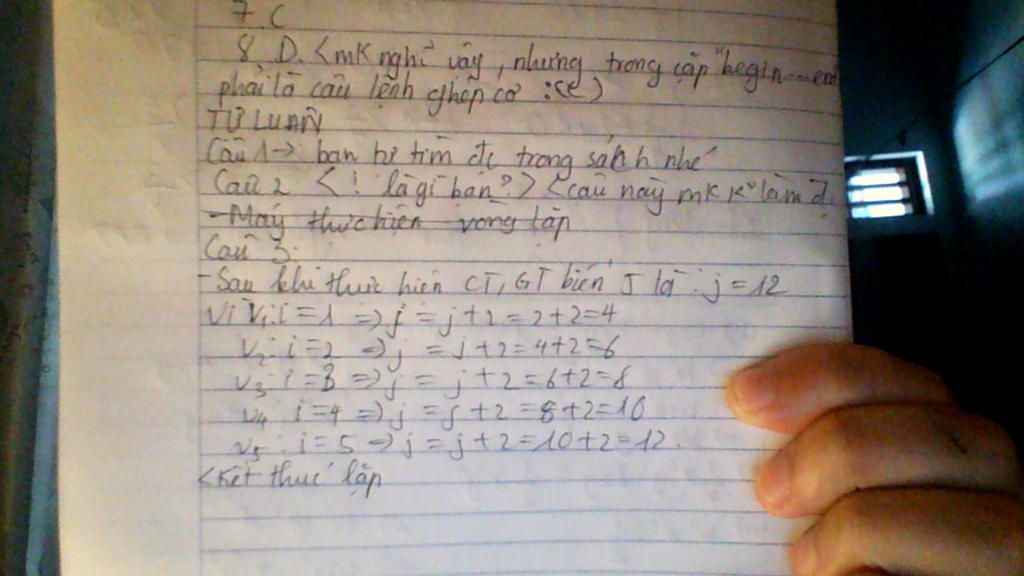 7. C
8. D. <mk nghĩ vậy, nhưng trong cặp "begin...end
phải là câu lệnh ghép cơ :(( )
TỰ LUẬN
Câu 1 → bạn tự tìm đc trong sách nhé
Câu 2 <! là gì bạn?> <câu này mk k° làm đ
- Máy thực hiện vòng lặp
Câu 3:
- Sau khi thực hiện CT, GT biến J là : j = 12
Vì V₁: i = 1 => j = j + 2 = 2 + 2 = 4
V₂: i = 2 => j = j + 2 = 4 + 2 = 6
V₃: i = 3 => j = j + 2 = 6 + 2 = 8
V₄ i = 4 => j = j + 2 = 8 + 2 = 10
V₅ : i = 5 => j = j + 2 = 10 + 2 = 12.
<Kết thúc lặp